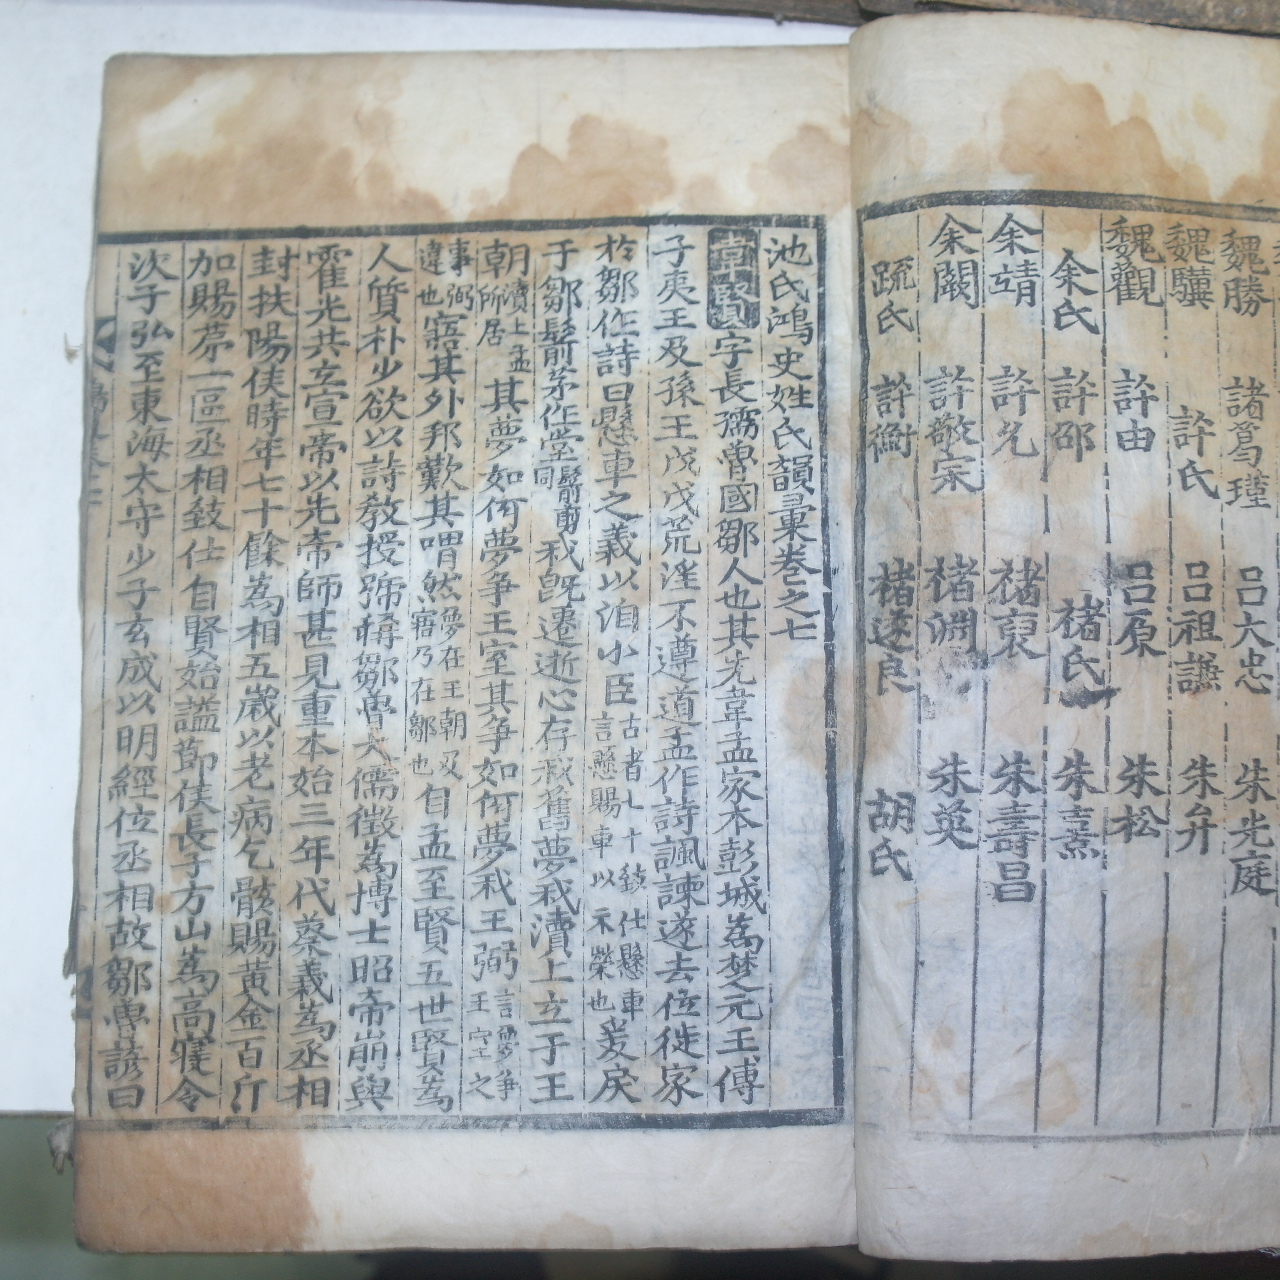 魏勝 諸葛瑾 呂大忠 朱光庭
魏驥 許氏 呂祖謙 朱弁
魏觀 許由 呂原 朱松
余氏 許邵 褚氏 朱熹
余靖 許允 褚裒 朱壽昌
余闕 許敬宗 褚淵 朱英
疏氏 許衡 褚遂良 胡氏
池氏鴻史姓氏韻彙卷之七
韋賢字長孺魯國鄒人也其先韋孟家本彭城爲楚元王傅
子夷王及孫王戊戊荒淫不遵道孟作詩諷諫遂去位徙家
於鄒作詩曰懸車之義以洎小臣古者七十致仕懸車言懸賜車以示榮也爰戾
于鄒鬋茅作堂鬋同翦我旣遷逝心存我舊夢我瀆上立于王
朝瀆上孟所居其夢如何夢爭王室其爭如何夢我王弼言夢爭王室之
事弼違也寤其外邦歎其喟然夢在王朝及寤乃在鄒也自孟至賢五世賢爲
人質朴少欲以詩敎授號稱鄒魯大儒徵爲博士昭帝崩與
霍光共立宣帝以先帝師甚見重本始三年代蔡義爲丞相
封扶陽侯時年七十餘爲相五歲以老病乞骸賜黃金百斤
加賜苐一區丞相致仕自賢始謚節侯長子方山爲高寢令
次子弘至東海太守少子玄成以明經位丞相故鄒魯諺曰